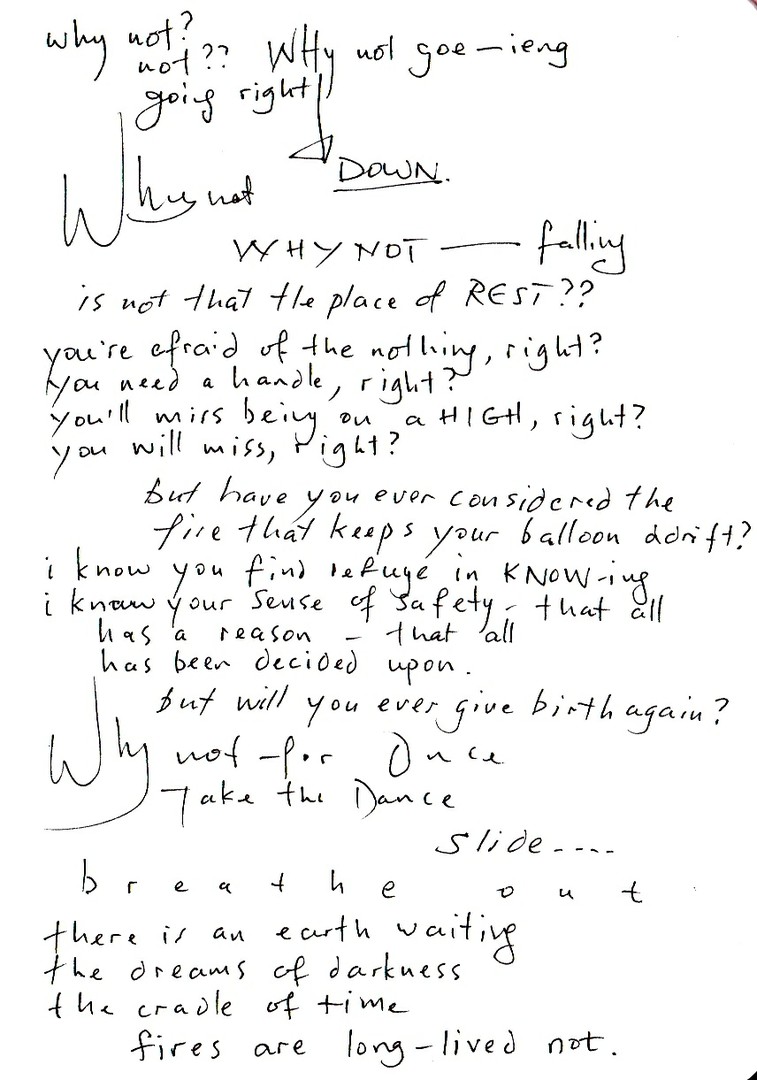 why not?
not?? WHy not goe-ieng
going right
DOWN.
Why not
WHY NOT — falling
is not that the place of REST??
you're afraid of the nothing, right?
you need a handle, right?
you'll miss being on a HIGH, right?
you will miss, right?
but have you ever considered the
fire that keeps your balloon adrift?
i know you find refuge in KNOW-ing
i know your sense of safety - that all
has a reason - that all
has been decided upon.
but will you ever give birth again?
Why not -for Once
Take the Dance
slide....
breathe out
there is an earth waiting
the dreams of darkness
the cradle of time
fires are long-lived not.